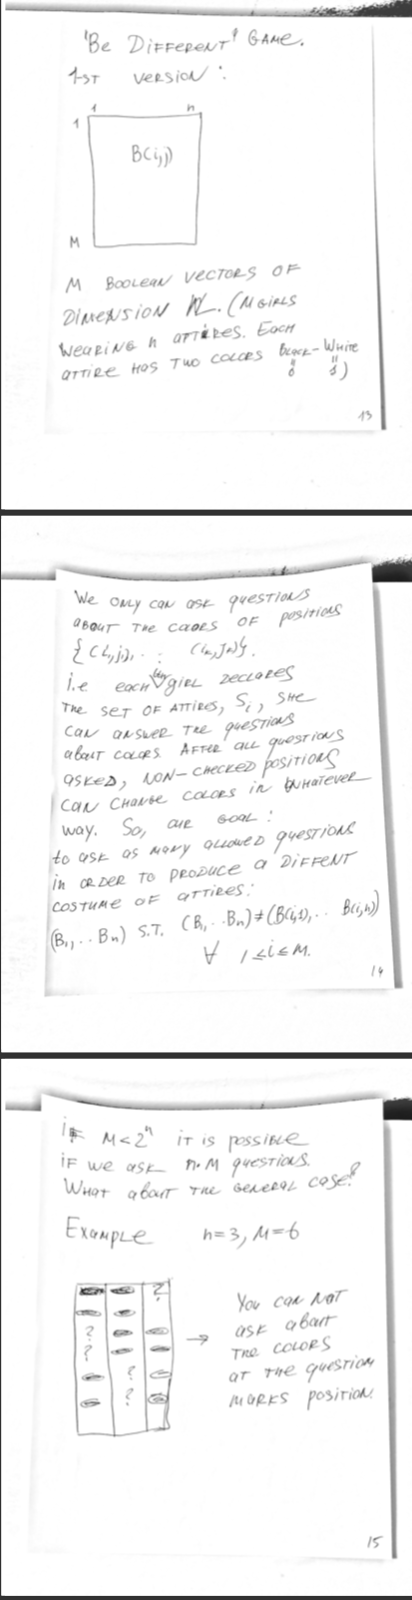 "BE DIFFERENT" GAME.
1-ST VERSION:
1 n
1
B(i,j)
M
M BOOLEAN VECTORS OF
DIMENSION n. (M GIRLS
WEARING n ATTIRES. EACH
ATTIRE HAS TWO COLORS BLACK-WHITE
" "
0 1)
13
WE ONLY CAN ASK QUESTIONS
ABOUT THE COLORS OF POSITIONS
{(i,j), .. :
i.e EACH GIRL DECLARES
THE SET OF ATTIRES, Si, SHE
CAN ANSWER THE QUESTIONS
ABOUT COLORS. AFTER ALL QUESTIONS
ASKED, NON-CHECKED POSITIONS
CAN CHANGE COLORS IN WHATEVER
WAY. SO, OUR GOAL:
TO ASK AS MANY ALLOWED QUESTIONS
IN ORDER TO PRODUCE A DIFFENT
COSTUME OF ATTIRES:
(B1,..Bn) S.T. (B1..Bn)≠(B(i,1),.. B(i,n))
∀ 1≤i≤M.
14
IF M<2^n IT IS POSSIBLE
IF WE ASK n·M QUESTIONS.
WHAT ABOUT THE GENERAL CASE?
EXAMPLE n=3, M=6
?
?
?
?
?
→
YOU CAN NOT
ASK ABOUT
THE COLORS
AT THE QUESTION
MARKS POSITION.
15